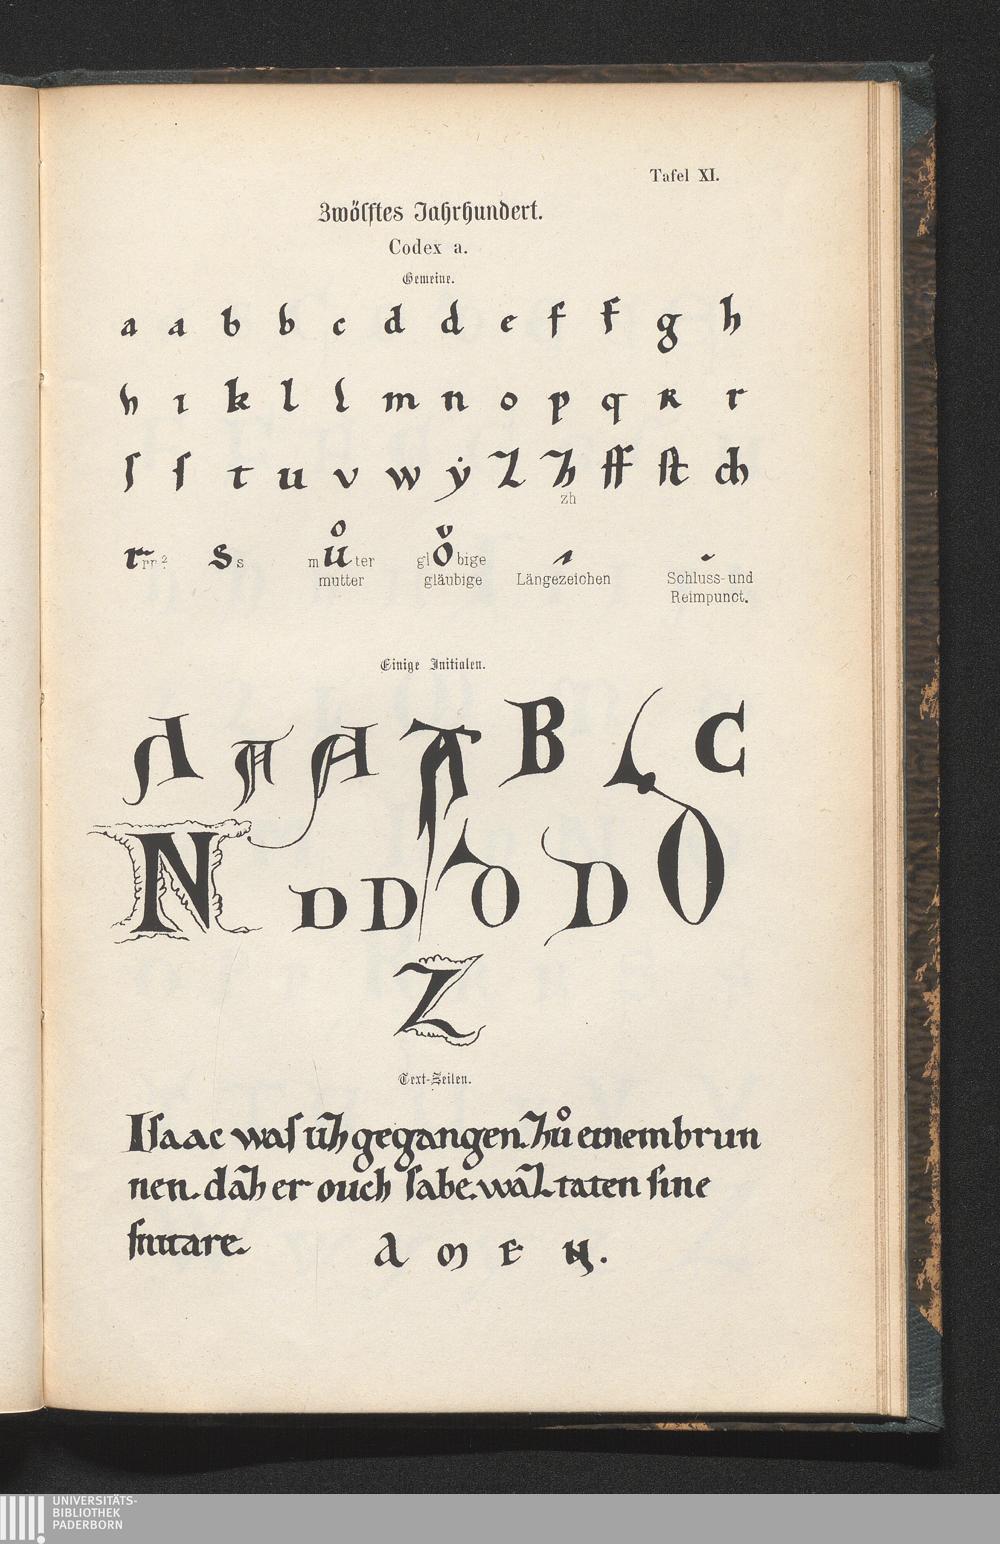 Tafel XI.
Zwölftes Jahrhundert.
Codex a.
Gemeine.
a a b b c d d e f f g h
h ı k l l m n o p q R r
ſ ſ t u v w ẏ Z zh ff ſt ch
zh
r rr? s s m uͦ ter gl oͮ bige
mutter gläubige Längezeichen Schluss- und
Reimpunct.
Einige Initialen.
A A A A B L C
N D D D D D
Z
Text-Zeilen.
Iſaac waſ uzh gegangen. zhuͦ einem brun
nen. dazh er ouch ſabe. waz taten ſine
ſnitare.
A M E N.
UNIVERSITÄTS-
BIBLIOTHEK
PADERBORN